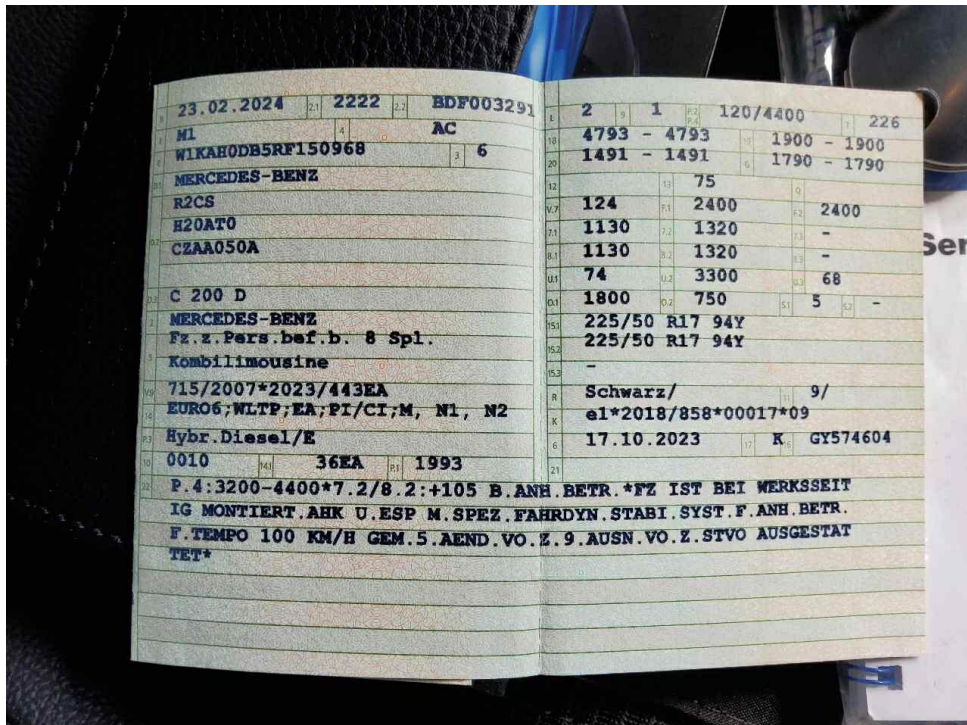 B 23.02.2024 2.1 2222 2.2 BDF003291
J M1 4 AC
E W1KAH0DB5RF150968 3 6
D.1 MERCEDES-BENZ
R2CS
D.2 H20AT0
CZAA050A
D.3 C 200 D
2 MERCEDES-BENZ
5 Fz.z.Pers.bef.b. 8 Spl.
Kombilimousine
V.9 715/2007*2023/443EA
14 EURO6;WLTP;EA;PI/CI;M, N1, N2
P.3 Hybr.Diesel/E
10 0010 14.1 36EA P.1 1993
L 2 9 1 P.2 P.4 120/4400 T 226
18 4793 - 4793 19 1900 - 1900
20 1491 - 1491 G 1790 - 1790
12 13 75 Q
V.7 124 F.1 2400 F.2 2400
7.1 1130 7.2 1320 7.3 -
8.1 1130 8.2 1320 8.3 -
U.1 74 U.2 3300 U.3 68
O.1 1800 O.2 750 S.1 5 S.2 -
15.1 225/50 R17 94Y
15.2 225/50 R17 94Y
15.3 -
R Schwarz/ 11 9/
K e1*2018/858*00017*09
6 17.10.2023 17 K 16 GY574604
21
22 P.4:3200-4400*7.2/8.2:+105 B.ANH.BETR.*FZ IST BEI WERKSSEIT
IG MONTIERT.AHK U.ESP M.SPEZ.FAHRDYN.STABI.SYST.F.ANH.BETR.
F.TEMPO 100 KM/H GEM.5.AEND.VO.Z.9.AUSN.VO.Z.STVO AUSGESTAT
TET*
Ser